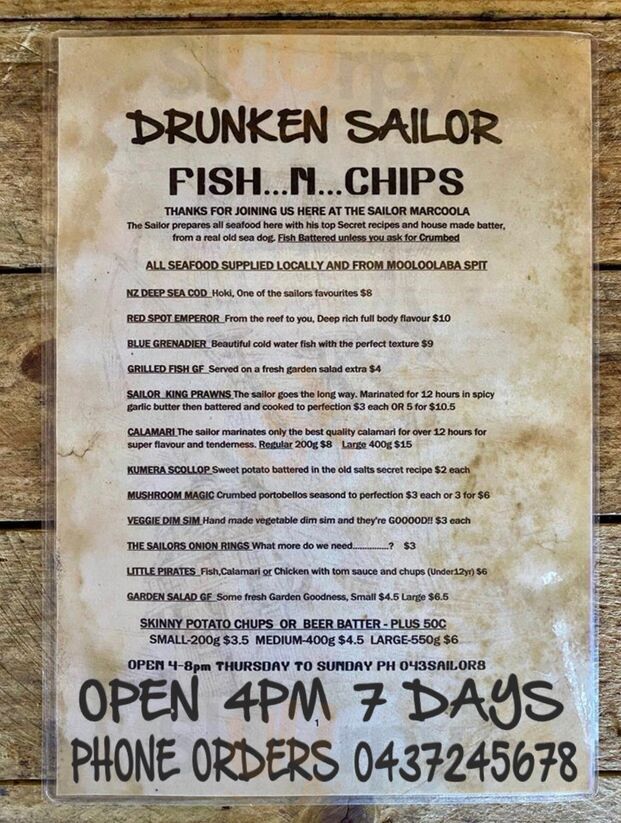 DRUNKEN SAILOR
FISH...N...CHIPS
THANKS FOR JOINING US HERE AT THE SAILOR MARCOOLA
The Sailor prepares all seafood here with his top Secret recipes and house made batter,
from a real old sea dog. Fish Battered unless you ask for Crumbed
ALL SEAFOOD SUPPLIED LOCALLY AND FROM MOOLOOLABA SPIT
NZ DEEP SEA COD Hoki, One of the sailors favourites $8
RED SPOT EMPEROR From the reef to you, Deep rich full body flavour $10
BLUE GRENADIER Beautiful cold water fish with the perfect texture $9
GRILLED FISH GF Served on a fresh garden salad extra $4
SAILOR KING PRAWNS The sailor goes the long way. Marinated for 12 hours in spicy
garlic butter then battered and cooked to perfection $3 each OR 5 for $10.5
CALAMARI The sailor marinates only the best quality calamari for over 12 hours for
super flavour and tenderness. Regular 200g $8 Large 400g $15
KUMERA SCOLLOP Sweet potato battered in the old salts secret recipe $2 each
MUSHROOM MAGIC Crumbed portobellos seasond to perfection $3 each or 3 for $6
VEGGIE DIM SIM Hand made vegetable dim sim and they're GOOOOD!! $3 each
THE SAILORS ONION RINGS What more do we need..............? $3
LITTLE PIRATES Fish,Calamari or Chicken with tom sauce and chups (Under12yr) $6
GARDEN SALAD GF Some fresh Garden Goodness, Small $4.5 Large $6.5
SKINNY POTATO CHUPS OR BEER BATTER - PLUS 50C
SMALL-200g $3.5 MEDIUM-400g $4.5 LARGE-550g $6
OPEN 4-8pm THURSDAY TO SUNDAY PH 043SAILOR8
OPEN 4PM 7 DAYS
1
PHONE ORDERS 0437245678